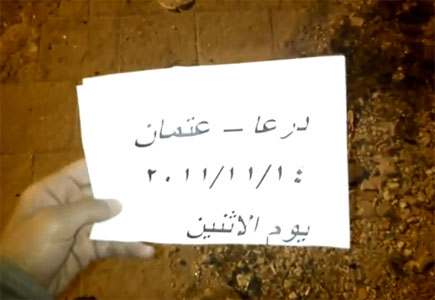 درعا - عتمان
٢٠١١/١١/١٤
يوم الاثنين